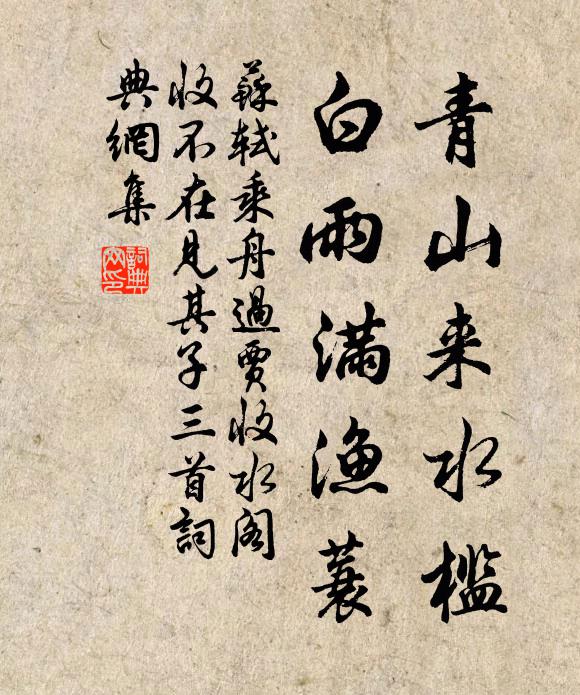 青山来水檻
白雨滿漁蓑
蘇軾乘舟過賈收水阁
收不在見其子三首詞
典網集
詞典
网印